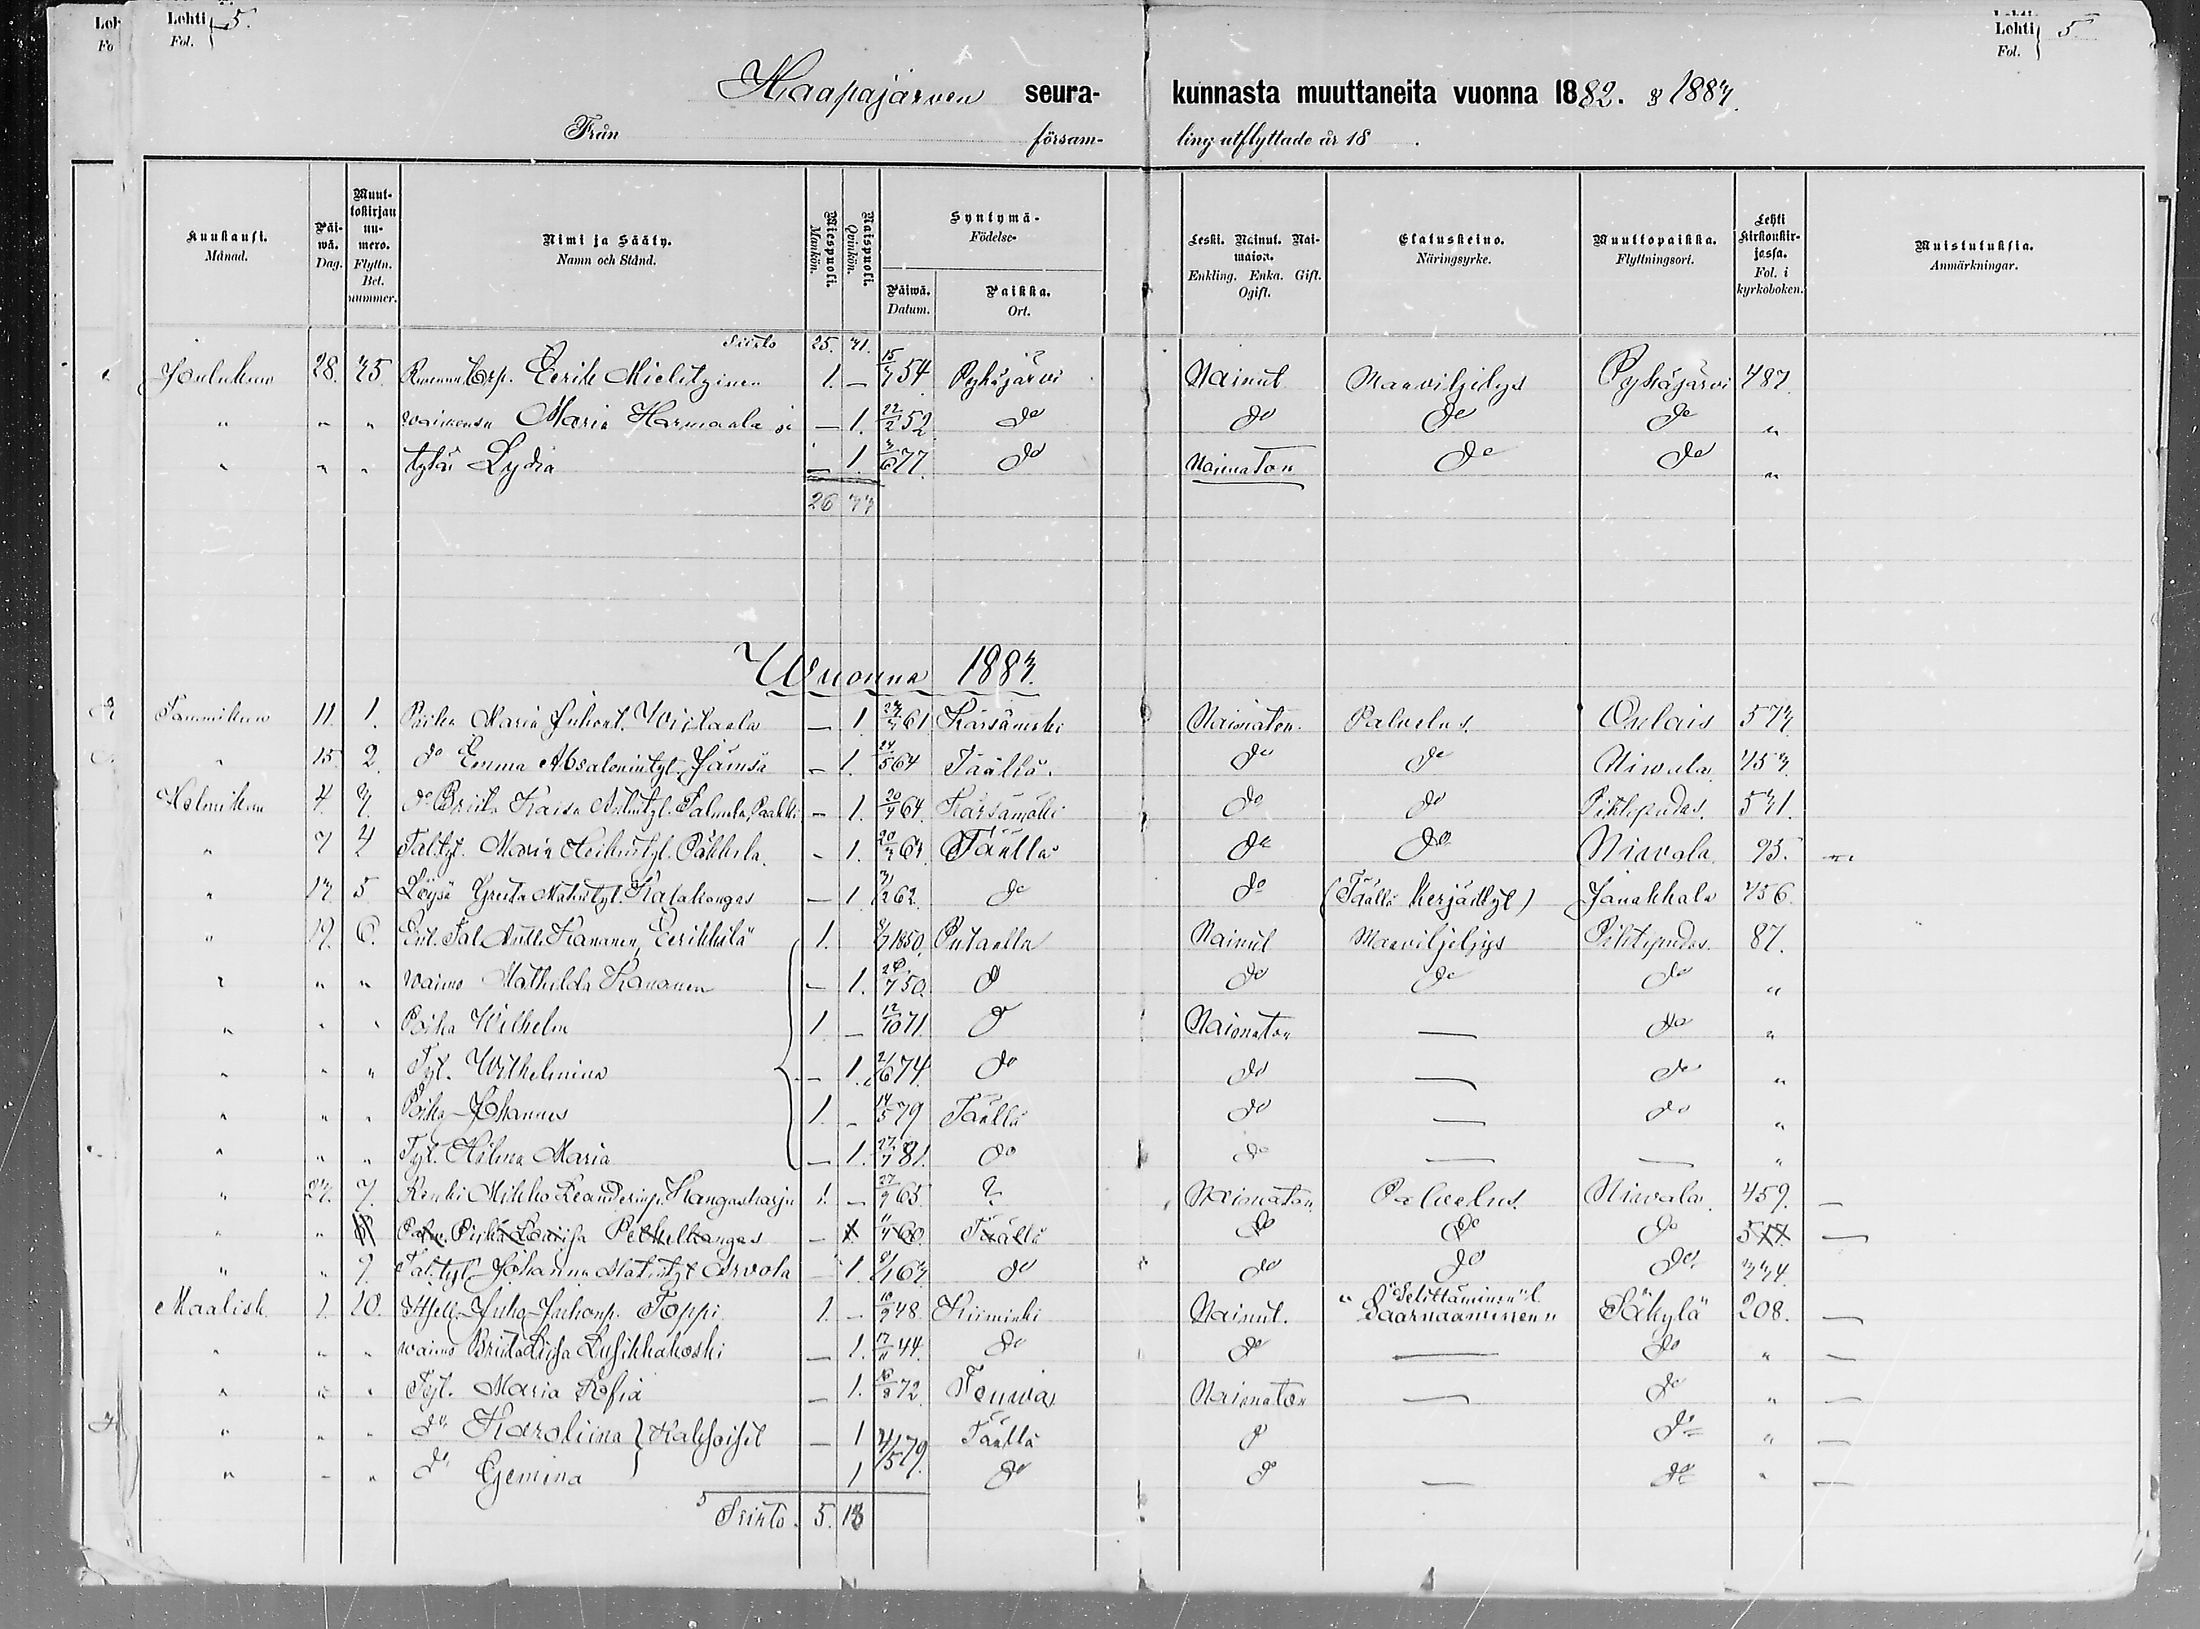 Lehti 5.
Fol.
Lehti 5
Fol.
Haapajärven seura- kunnasta muuttaneita vuonna 1882. & 1883.
Från församling utflyttade år 18 .
Kuukausi. Månad.
Päiwä. Dag.
Muuttokirjan numero. Flyttn. Bet. nummer.
Nimi ja Sääty. Namn och Stånd.
Miespuoli. Mankön.
Naispuoli. Quinkön.
Syntymä- Födelse-
Päiwä. Datum.
Paikka. Ort.
Leski. Nainut. Naimaton. Enkling. Enka. Gift. Ogift.
Elatuskeino. Näringsyrke.
Muuttopaikka. Flyttningsort.
Lehti Kirkonkirjassa. Fol. i kyrkoboken.
Muistutuksia. Anmärkningar.
Siirto 25. 31.
Joulukuu 28. 35. Eerik Mielitginen 1. – 15/3 54 Pyhäjärvi Nainut Maaviljelys Pyhäjärvi 487
" " " waimonsa Maria Harmaala ja – 1. 22/2 52 do do do do "
" " " tytär Lydia – 1. 3/6 77. do Naimaton do do "
26 33
Wuonna 1883.
Tammikuu 11. 1. Piika Maria Juhont. Wiitaala – 1. 23/3 61 Kärsämäki Naimaton. Palvelus. Oulais 573
" 15. 2. do Emma Absalonintyt. Jämsä – 1. 24/5 64 Täällä. do do Niwala 453.
Helmikuu 4. 3. do Brita Kaisa Palmela, Paakki – 1. 20/4 64. Kärsämäki do do Pihtipudas. 531.
" 7 4 Tal.tyt. Maria Heikintyt. Päkkilä. – 1. 20/3 64. Täällä do do Niwala 95. "
" 13 5 Löysä Greeta Matintyt. Katakangas – 1 31/2 62. do do (Täällä kerjäillyt) Janakkala 456.
" 19. 6. Ent. Tal. Antti Kananen, Eerikkilä 1. 8/7 1850. Putaalla Nainut Maaviljeljys Pihtipudas. 87.
" " " waimo Mathilda Kananen – 1. 26/7 50. do do do do "
" " " Poika Wilhelm 1 – 12/10 71. do Naimaton — do "
" " " Tyt. Wilhelmina – 1. 2/6 74. do do — do "
" " " Poika Johannes 1. – 14/5 79 Täällä do — do "
" " " Tyt. Hilma Maria – 1. 27/7 81. do do — — "
" 23. 7. Renki Mikko Leanderinp. Kangasharju 1. – 27/9 65 ? Naimaton Palvelus. Niwala 459. —
" " 8 Piika Loviisa Petkelkangas – 1 11/4 60. Täällä do do do —
" " 9. Tal. tyt. Johanna Matintyt Arvola – 1. 9/1 63 do do do do 334.
Maalisk. 1. 10. Itsell. Juho Juhonp. Toppi 1. – 10/9 48. Kiiminki Nainut. "Selittäminen" l. "Saarnaaminen" Säkylä 208. —
" " " waimo Briita Liisa Lusikkakoski – 1. 17/11 44. do do — do " —
" " " Tyt. Maria Sofia – 1. 10/8 72. Temwas Naimaton — do " —
" " " do Karoliina } Kaksoiset – 1 21/5 79. Täällä do do " —
" " " do Gemina 1 do do — do " —
Siirto. 5. 18